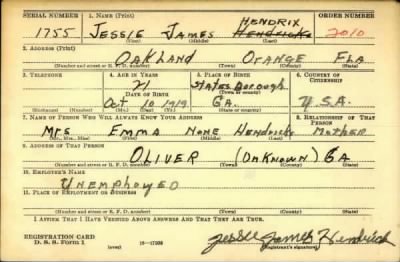 SERIAL NUMBER 1. NAME (Print) HENDRIX ORDER NUMBER
1755 JESSIE JAMES Hendricks 2010
(First) (Middle) (Last)
2. ADDRESS (Print)
OAKLAND ORANGE FLA
(Number and street or R. F. D. number) (Town) (County) (State)
3. TELEPHONE 4. AGE IN YEARS 5. PLACE OF BIRTH 6. COUNTRY OF CITIZENSHIP
21 Statesborough
DATE OF BIRTH (Town or county)
Oct 10 1919 GA. U.S.A.
(Exchange) (Number) (Mo.) (Day) (Yr.) (State or country)
7. NAME OF PERSON WHO WILL ALWAYS KNOW YOUR ADDRESS 8. RELATIONSHIP OF THAT PERSON
Mrs Emma None Hendricks Mother
(Mr., Mrs., Miss) (First) (Middle) (Last)
9. ADDRESS OF THAT PERSON
OLIVER (UNKNOWN) GA
(Number and street or R. F. D. number) (Town) (County) (State)
10. EMPLOYER'S NAME
UNEMPLOYED
11. PLACE OF EMPLOYMENT OR BUSINESS
(Number and street or R. F. D. number) (Town) (County) (State)
I AFFIRM THAT I HAVE VERIFIED ABOVE ANSWERS AND THAT THEY ARE TRUE.
REGISTRATION CARD
D. S. S. Form 1 (over) 16-17105 Jessie James Hendrick
(Registrant's signature)